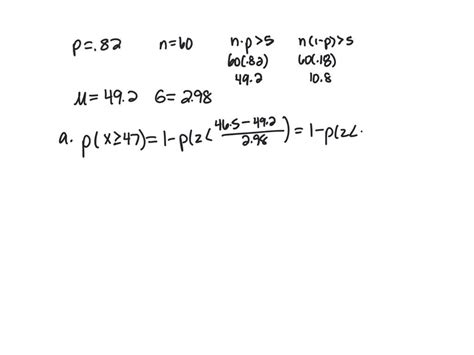 p=.82 n=60 n·p>5 n(1-p)>5
60(.82) 60(.18)
49.2 10.8
μ=49.2 б=2.98
a. p(x≥47)=1-p(z<(46.5-49.2)/2.98)=1-p(z<.